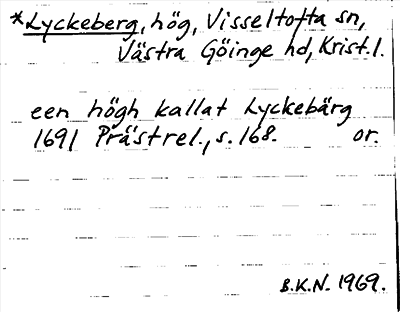 *Lyckeberg, hög, Visseltofta sn,
Västra Göinge hd, Krist. l.
een högh kallat Lyckebärg
1691 Prästrel., s. 168. or.
B.K.N. 1969.